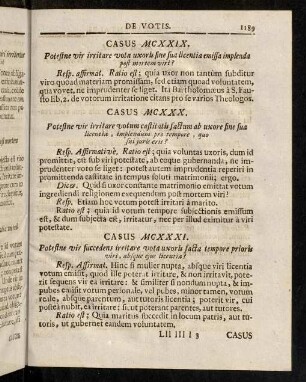 DE VOTIS. 1189
CASUS MCXXIX.
Potestne vir irritare vota uxoris sine sua licentia emissa implenda
post mortem viri?
Resp. affirmat. Ratio est; quia uxor non tantùm subditur
viro quoad materiam promissam, sed etiam quoad voluntatem,
qua vovet, ne imprudenter se liget. Ita Bartholomæus à S. Fau-
sto lib. 2. de votorum irritatione citans pro se varios Theologos.
CASUS MCXXX.
Potestne vir irritare votum castitatis factum ab uxore sine sua
licentia, implendum pro tempore, quo
sui juris erit?
Resp. Affirmativè. Ratio est; quia voluntas uxoris, dum id
promittit, est sub viri potestate, ab eoque gubernanda, ne im-
prudenter voto se liget: potest autem imprudentia reperiri in
promittenda castitate in tempus soluti matrimonii. ergo.
Dices. Quid si uxor constante matrimonio emittat votum
ingrediendi religionem exequendum post mortem viri?
Resp. Etiam hoc votum potest irritari à marito.
Ratio est; quia id votum tempore subjectionis emissum
est, & dum subjecta est, irritatur, nec per illud eximitur à viri
potestate.
CASUS MCXXXI.
Potestne vir succedens irritare vota uxoris facta tempore prioris
viri, absque ejus licentia?
Resp. Affirmat. Hinc si mulier nupta, absque viri licentia
votum emisit, quod ille poterat irritare, & non irritavit, pote-
rit sequens vir ea irritare: & similiter si nondum nupta, & im-
pubes emisit votum personale, vel pubes, minor tamen, votum
reale, absque parentum, aut tutoris licentia; poterit vir, cui
postea nubit, ea irritare: si, ut poterant parentes, aut tutores.
Ratio est; Quia maritus succedit in locum patris, aut tu-
toris, ut gubernet eandem voluntatem.
Lll lll l 3 CASUS